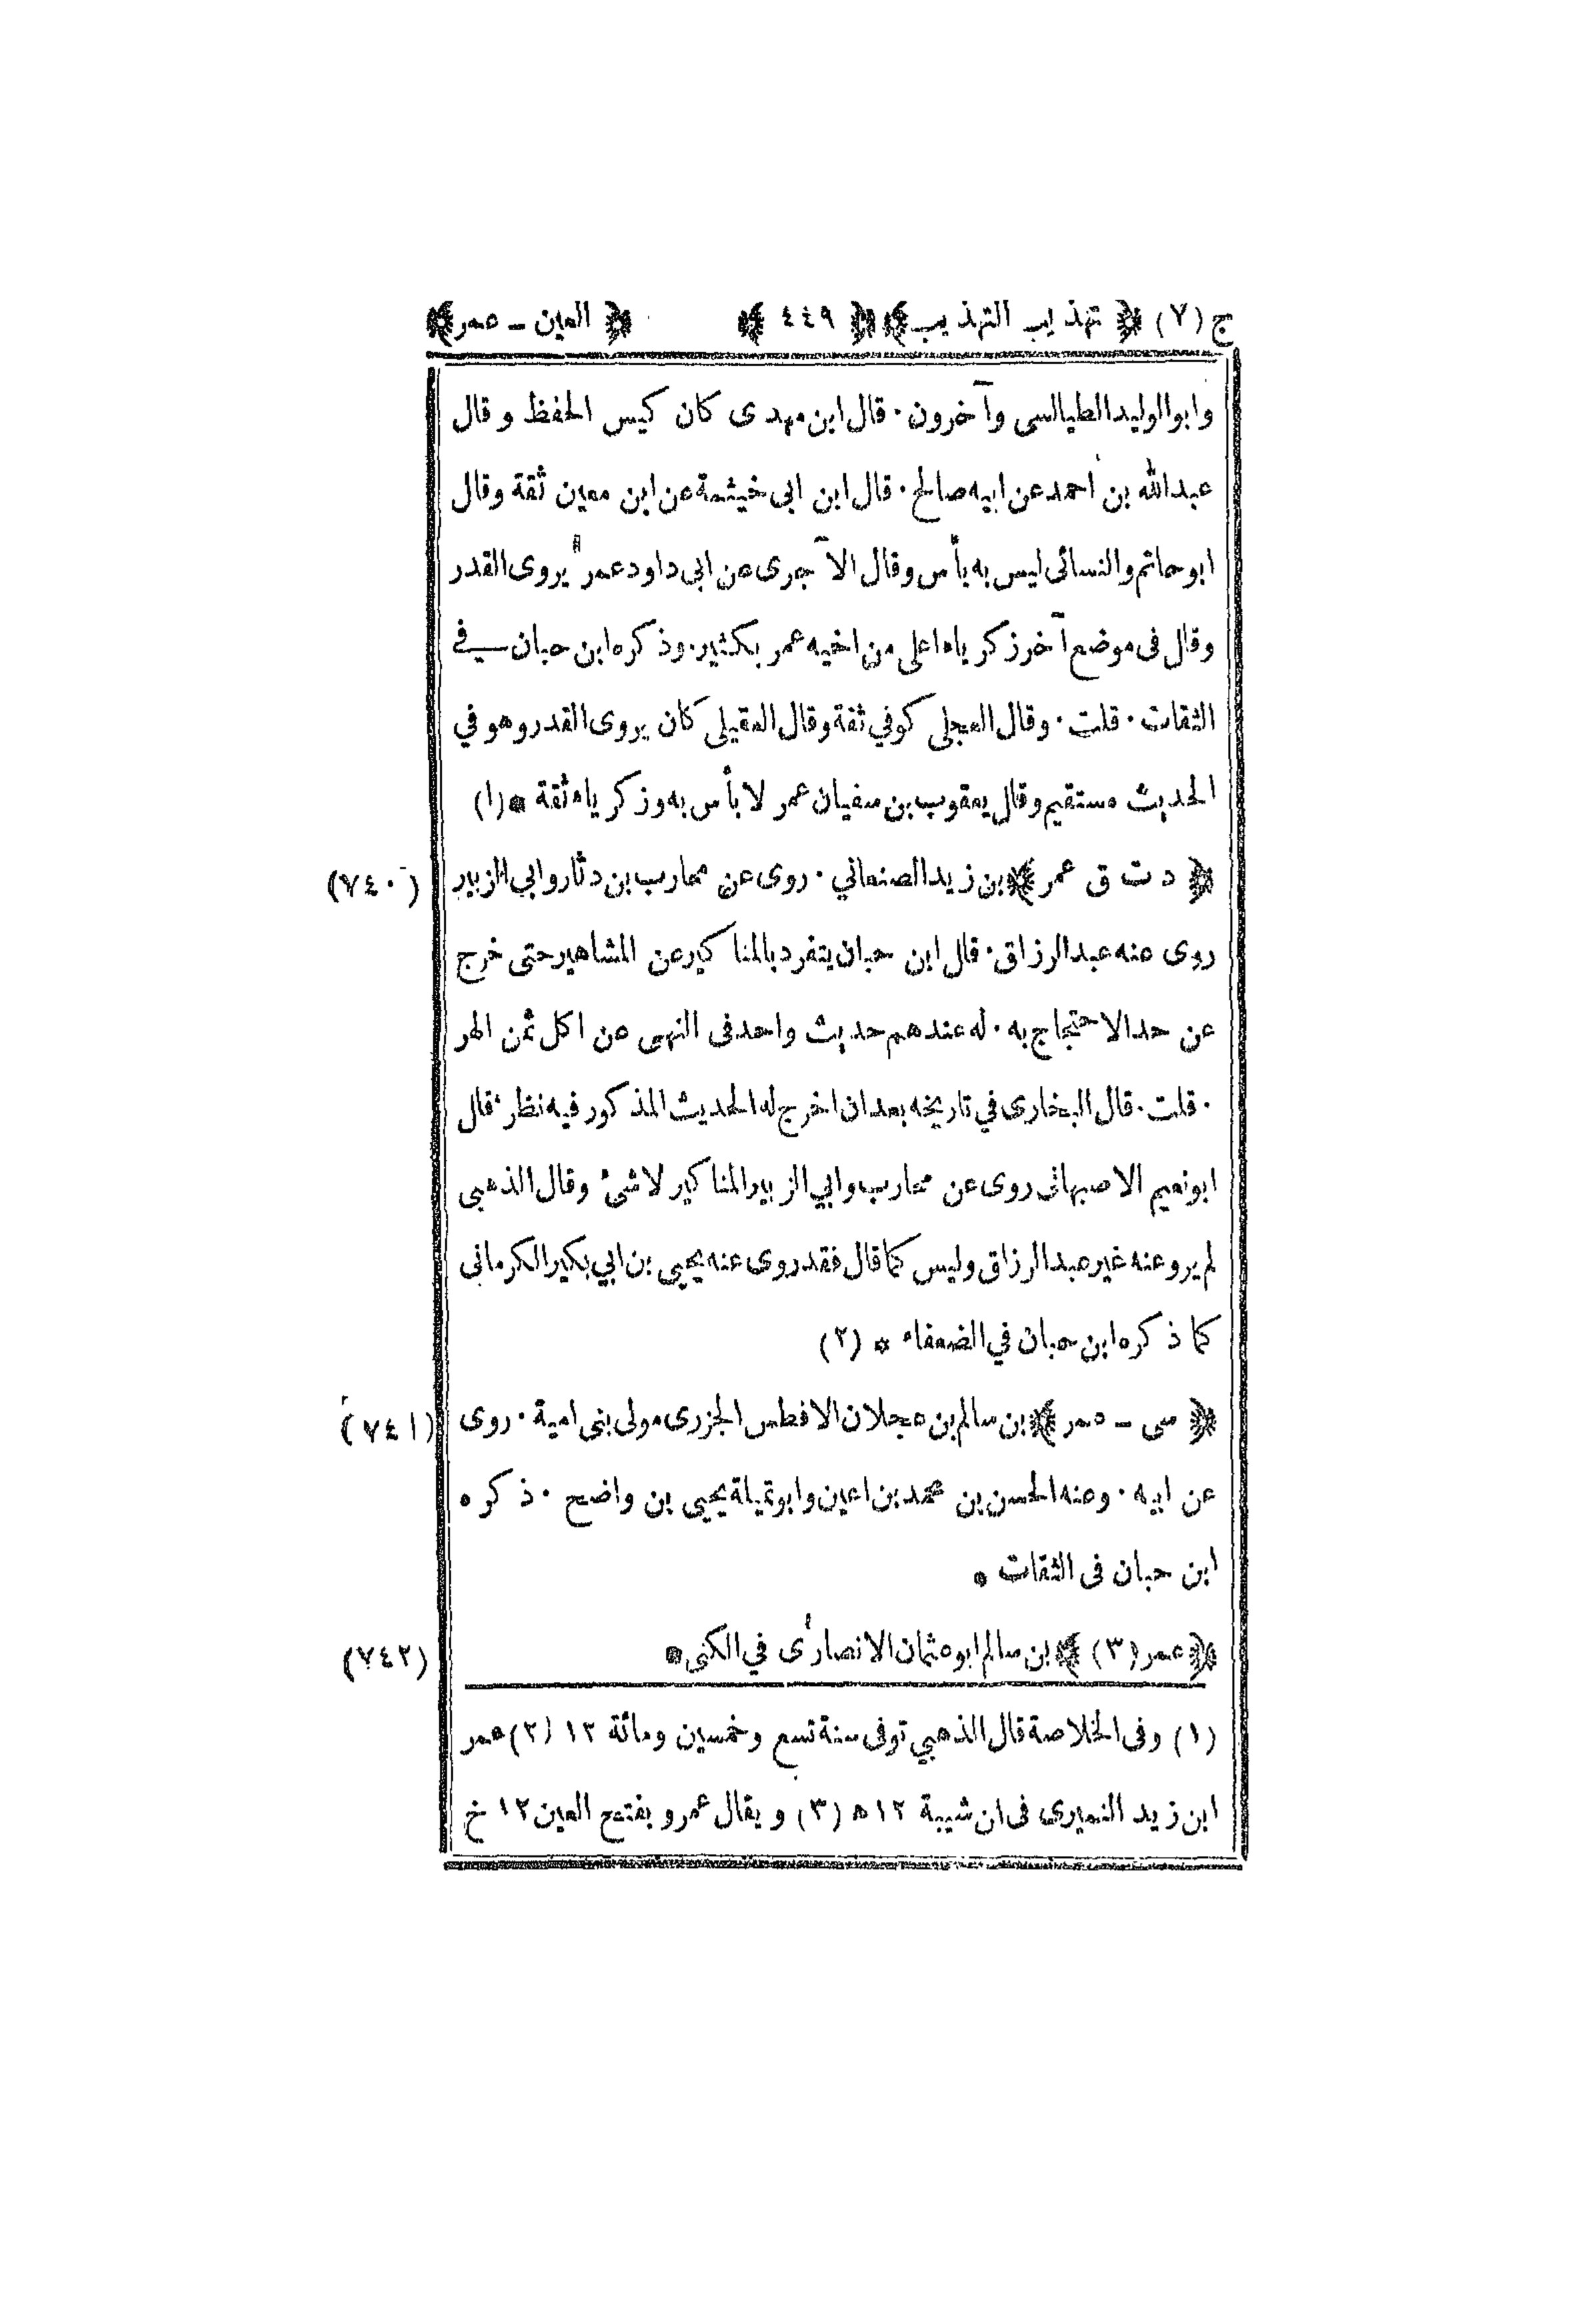 ج (٧) ﴿ تهذيب التهذيب ﴾ ﴿ ٤٤٩ ﴾ ﴿ العين ـ عمر ﴾
وابوالوليد الطيالسى وآخرون ٠ قال ابن مهدى كان كيس الحفظ وقال
عبدالله بن احمد عن ابيه صالح ٠ قال ابن ابى خيثمة عن ابن معين ثقة وقال
ابوحاتم والنسائى ليس به بأس وقال الآجرى عن ابى داود عمر يروى القدر
وقال فى موضع آخر زكرياء اعلى من اخيه عمر بكثير ٠ وذكره ابن حبان فى
الثقات ٠ قلت ٠ وقال العجلى كوفي ثقة وقال العقيلى كان يروى القدر وهو في
الحديث مستقيم وقال يعقوب بن سفيان عمر لا بأس به وزكرياء ثقة * (١)
﴿ د ت ق عمر ﴾ بن زيد الصنعاني ٠ روى عن محارب بن دثار وابي الزبير (٧٤٠)
روى عنه عبدالرزاق ٠ قال ابن حبان يتفرد بالمناكير عن المشاهير حتى خرج
عن حد الاحتجاج به ٠ له عندهم حديث واحد فى النهى عن اكل ثمن الهر
٠ قلت ٠ قال البخارى في تاريخه بعد ان اخرج له الحديث المذكور فيه نظر ٠ قال
ابونعيم الاصبهانى روى عن محارب وابي الزبير المناكير لاشئ وقال الذهبى
لم يرو عنه غير عبدالرزاق وليس كما قال فقد روى عنه يحيى بن ابي بكير الكرمانى
كما ذكره ابن حبان في الضعفاء * (٢)
﴿ سى ـ عمر ﴾ بن سالم بن عجلان الافطس الجزرى مولى بنى امية ٠ روى (٧٤١)
عن ابيه ٠ وعنه الحسن بن محمد بن اعين وابوتميلة يحيى بن واضح ٠ ذكره
ابن حبان فى الثقات *
﴿ عمر (٣) ﴾ بن سالم ابو عثمان الانصارى في الكنى * (٧٤٢)
(١) وفى الخلاصة قال الذهبي توفى سنة تسع وخمسين ومائة ١٢ (٢) عمر
ابن زيد النميرى فى ابن شيبة ١٢ ه (٣) ويقال عمرو بفتح العين ١٢ خ